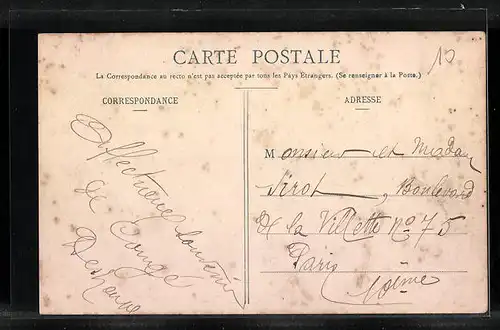 CARTE POSTALE
La Correspondance au recto n'est pas acceptée par tous les Pays Etrangers. (Se renseigner à la Poste.)
CORRESPONDANCE
ADRESSE
Affectueux souvenir
de Congé
Monsieur et Madam
Sirot, Boulevard
de la Villette No 75
Paris